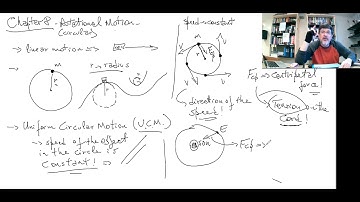 Chapter 8 - Rotational Motion -
(Circular)
→ linear motion ⇒
m
r
r → radius
→ Uniform Circular Motion (U.C.M.)
→ speed of the object
in the circle is
constant!
speed = constant
m
v
v
v
v
↳ direction of the
speed!
Sun
E
Fcp = centripetal
force!
Tension on the
Cord!
Fcp ⇒